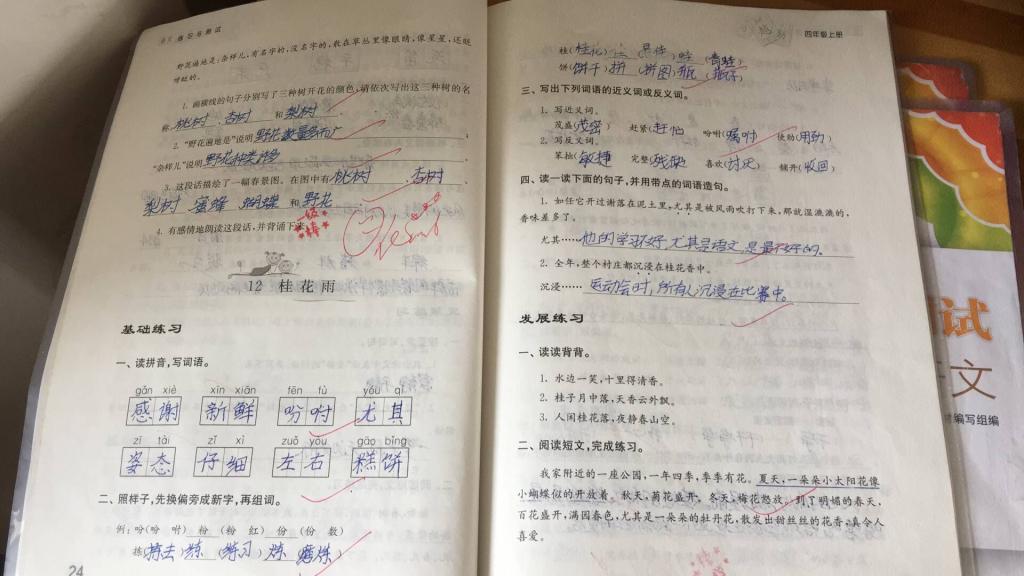 练习与测试
野花遍地是:杂样儿,有名字的,没名字的,散在草丛里像眼睛,像星星,还眨
呀眨的。
1. 画横线的句子分别写了三种树开花的颜色,请依次写出这三种树的名
称 桃树 杏树 和 梨树 。
2. “野花遍地是”说明 野花数量多而广 ,
“杂样儿”说明 野花种类多 。
3. 这段话描绘了一幅春景图。在图中有 桃树 、 杏树 、
梨树 蜜蜂 蝴蝶 和 野花 。
4. 有感情地朗读这段话,并背诵下来。
一级棒
12 桂花雨
基础练习
一、读拼音,写词语。
gǎn xiè xīn xiān fēn fù yóu qí
感谢 新鲜 吩咐 尤其
zī tài zǐ xì zuǒ yòu gāo bǐng
姿态 仔细 左右 糕饼
二、照样子,先换偏旁成新字,再组词。
例:吩(吩 咐) 粉 (粉 红) 份 (份 数)
拣(拣去) 练 (练习) 炼
24
四年级上册
桂(桂花) 蛙 (青蛙)
饼(饼干) 拼 (拼图) 瓶 (瓶子)
三、写出下列词语的近义词或反义词。
1. 写近义词。
茂盛(茂密) 赶紧(赶忙) 吩咐(嘱咐) 使劲(用劲)
2. 写反义词。
笨拙(敏捷) 完整(残缺) 喜欢(讨厌) 铺开(收回)
四、读一读下面的句子,并用带点的词语造句。
1. 如任它开过谢落在泥土里,尤其是被风雨吹打下来,那就湿漉漉的,
香味差多了。
尤其…… 他的学习不好,尤其是语文是最不好的。
2. 全年,整个村庄都沉浸在桂花香中。
沉浸…… 运动会时,所有人沉浸在比赛中。
发展练习
一、读读背背。
1. 水边一笑,十里得清香。
2. 桂子月中落,天香云外飘。
3. 人闲桂花落,夜静春山空。
二、阅读短文,完成练习。
我家附近的一座公园,一年四季,季季有花。夏天,一朵朵小太阳花像
小蝴蝶似的开放着。秋天,菊花盛开。冬天,梅花怒放。到了明媚的春天,
百花盛开,满园春色,尤其是一朵朵的牡丹花,散发出甜丝丝的花香,真令人
喜爱。
试
文
编写组编